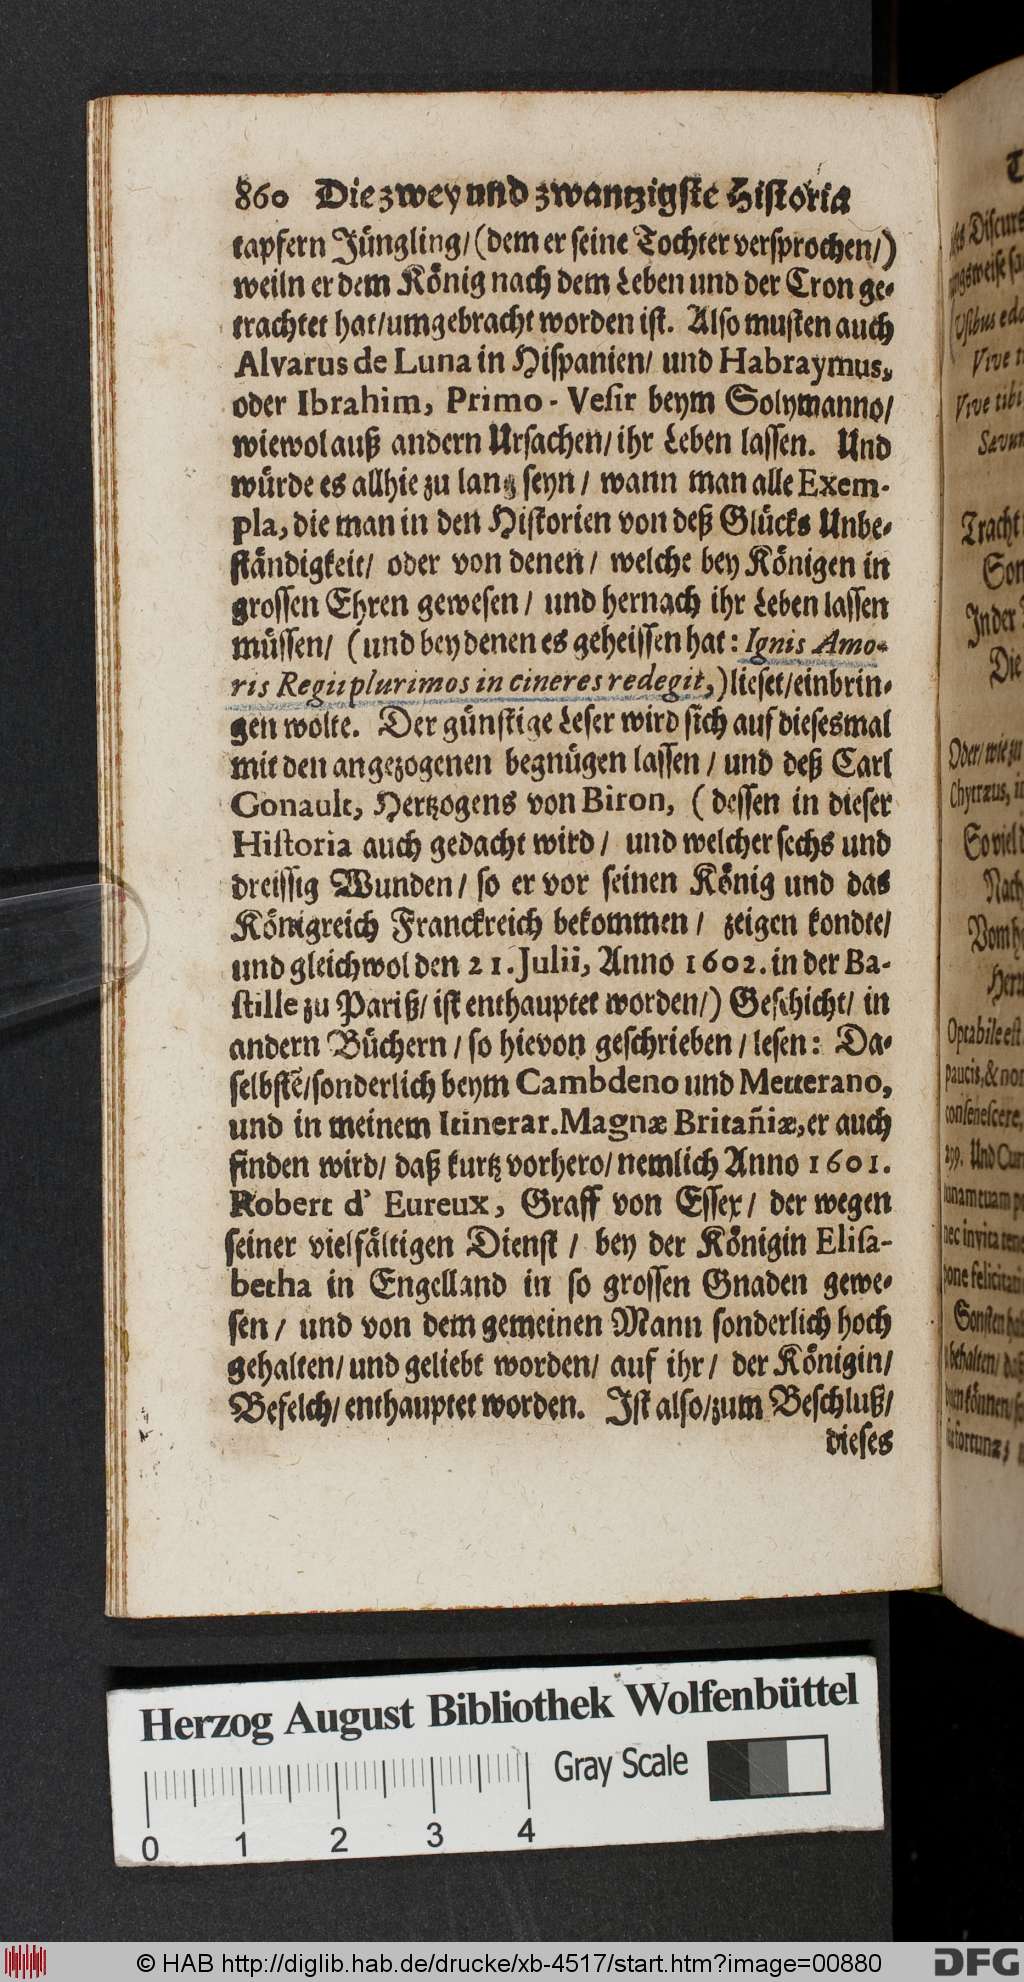 860 Die zwey und zwantzigste Historia
tapfern Jüngling/ (dem er seine Tochter versprochen/)
weiln er dem König nach dem Leben und der Cron ge-
trachtet hat/ umgebracht worden ist. Also musten auch
Alvarus de Luna in Hispanien/ und Habraymus,
oder Ibrahim, Primo-Vesir beym Solymanno/
wiewol auß andern Ursachen/ ihr Leben lassen. Und
würde es allhie zu lang seyn/ wann man alle Exem-
pla, die man in den Historien von deß Glücks Unbe-
ständigkeit/ oder von denen/ welche bey Königen in
grossen Ehren gewesen/ und hernach ihr Leben lassen
müssen/ (und bey denen es geheissen hat: Ignis Amo-
ris Regii plurimos in cineres redegit,) lieset/ einbrin-
gen wolte. Der günstige Leser wird sich auf diesesmal
mit den angezogenen begnügen lassen/ und deß Carl
Gonault, Hertzogens von Biron, (dessen in dieser
Historia auch gedacht wird/ und welcher sechs und
dreissig Wunden/ so er vor seinen König und das
Königreich Franckreich bekommen/ zeigen kondte/
und gleichwol den 21. Julii, Anno 1602. in der Ba-
stille zu Pariß/ ist enthauptet worden/) Geschicht/ in
andern Büchern/ so hievon geschrieben/ lesen: Da-
selbstẽ/ sonderlich beym Cambdeno und Metterano,
und in meinem Itinerar. Magnæ Britañiæ, er auch
finden wird/ daß kurtz vorhero/ nemlich Anno 1601.
Robert d' Eureux, Graff von Essex/ der wegen
seiner vielfältigen Dienst/ bey der Königin Elisa-
betha in Engelland in so grossen Gnaden gewe-
sen/ und von dem gemeinen Mann sonderlich hoch
gehalten/ und geliebt worden/ auf ihr/ der Königin/
Befelch/ enthauptet worden. Ist also/ zum Beschluß/
dieses
Tracht
Son
In der
Die
Chytræus,
So viel
Nach
Optabile est
paucis, & non
consenescere,
299. Und
nec invita
Sonsten
behalten/
können/
Herzog August Bibliothek Wolfenbüttel
Gray Scale
0 1 2 3 4
© HAB http://diglib.hab.de/drucke/xb-4517/start.htm?image=00880
DFG